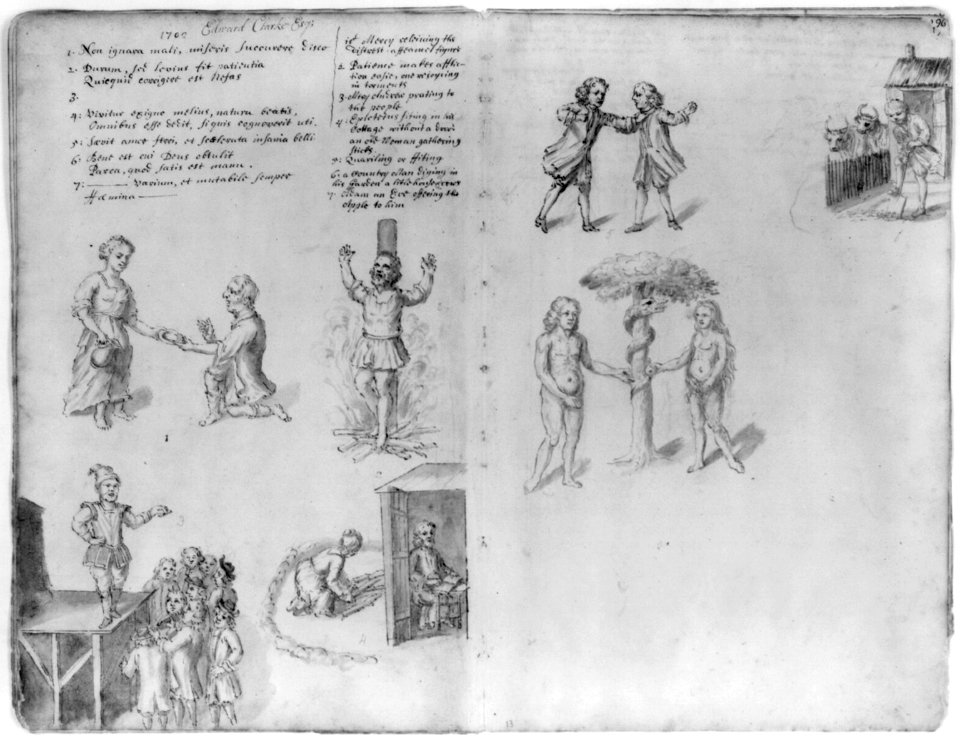 1702 Edward Clarke Esqr
1. Non ignara mali, miseris succurere disco
2. Durum, sed levius fit patientia
Quicquid corrigere est nefas
3.
4: Vivitur exiguo melius, natura beatis,
Omnibus esse dedit, si quis cognoverit uti.
5: Sævit amor ferri, et scelerata insania belli
6: Bene est cui Deus obtulit
Parca, quod satis est manu.
7: ——— Varium, et mutabile semper
Fæmina ———
1st Mercy releiving the
distrest a
2. Patience makes afflic-
tion easie, one rejoycing
in torments
3. prating to
the people
4. Epictetus siting in his
Cottage without a dore
an old Woman gathering
sticks
5: Quarriling or fiting
6: a Country Man diging in
his Garden a litle house
7. Adam an Eve offering the
apple to him
2
3
4
5
13